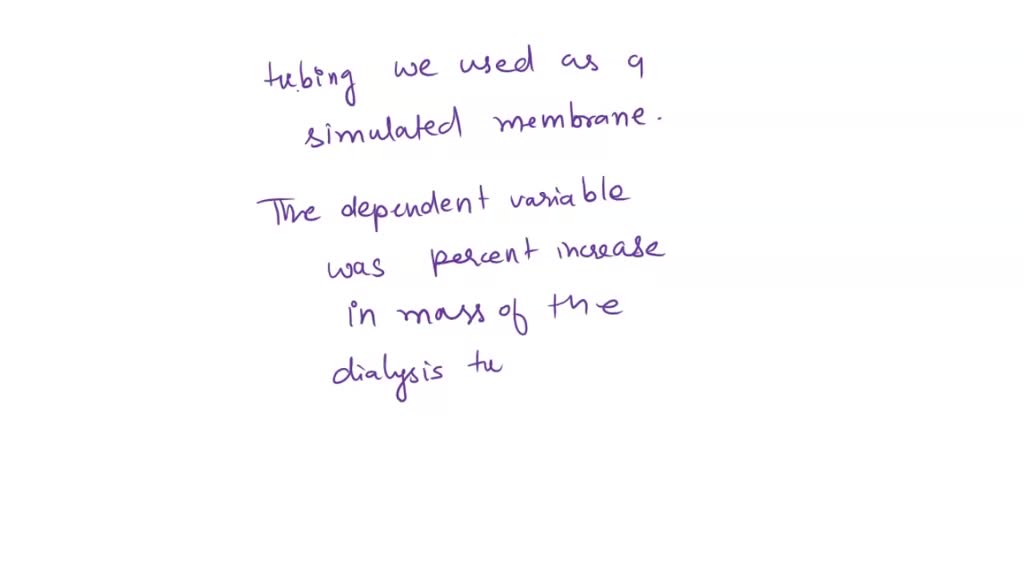 tubing we used as a
simulated membrane.
The dependent variable
was percent increase
in mass of the
dialysis tu